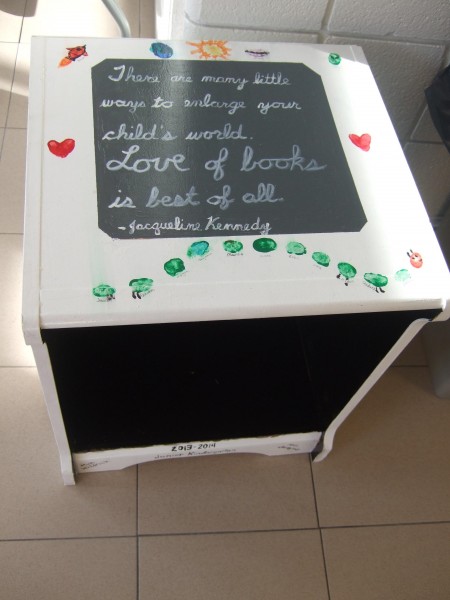 There are many little
ways to enlarge your
child's world.
Love of books
is best of all
-Jacqueline Kennedy
2013-2014
Junior Kindergarten